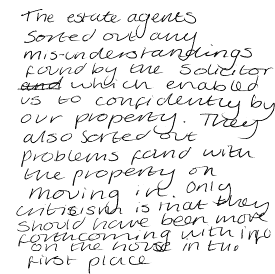 The estate agents
sorted out any
mis-understandings
found by the solicitor
and which enabled
us to confidently by
our property. They
also sorted out
problems found with
the property on
moving in. Only
critisism is that they
should have been more
forthcoming with info
on the house in the
first place